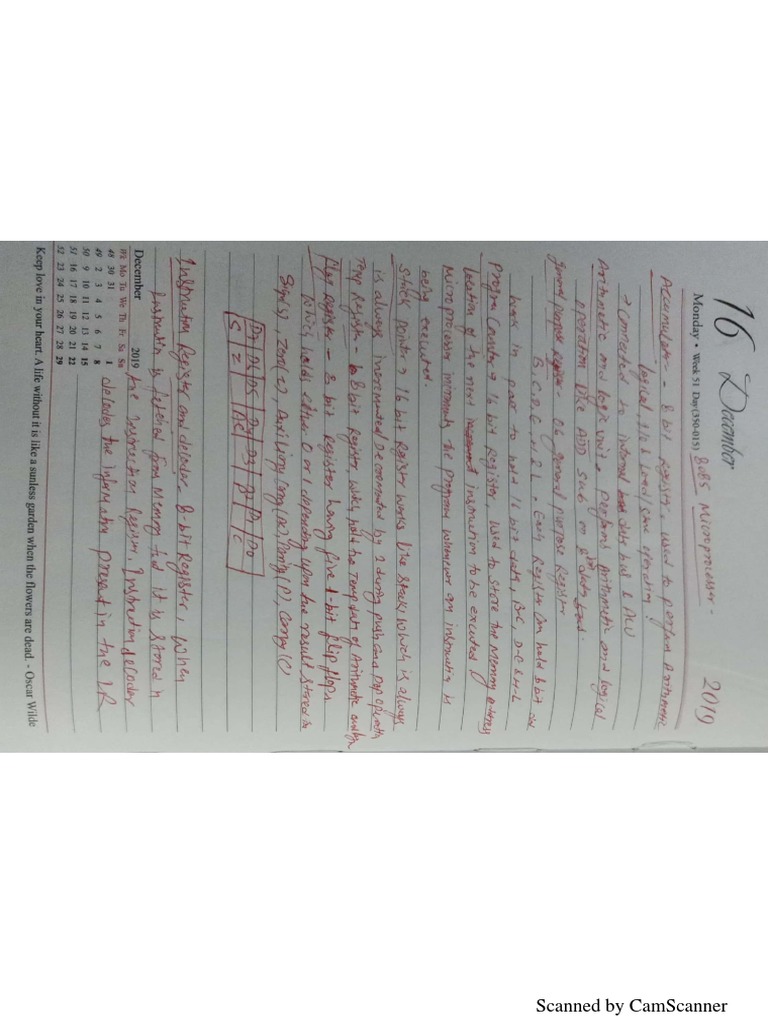 16 December
2019
Monday • Week 51 Day (350-015)
8085 Microprocessor -
Accumulator - 8 bit Register, used to perform Arithmetic
logical, I/O & load/store operation
→ connected to internal data bus & ALU
Arithmetic and logic unit → performs Arithmetic and logical
operation like ADD Sub on 8 bit
general purpose register - 06 general purpose Register
B, C, D, E, H & L. Each Register can hold 8 bit
work in pair to hold 16 bit data, B-C, D-E & H-L
Program Counter → 16 bit Register, used to store the Memory address
location of the next instruction to be executed
Microprocessor increments the program whenever an instruction is
being executed.
Stack pointer → 16 bit Register works like stack, which is always
is always incremented/Decremented by 2 during push and pop operation
Temp Register - 8 bit Register, which hold the Temp data of Arithmetic
Flag Register - 8 bit Register having five 1-bit flip flops
which holds either 0 or 1 depending upon the result stored in
Sign(s), Zero(z), Auxiliary Carry(Ac), Parity(P), Carry(C)
D7 D6 D5 D4 D3 D2 D1 D0
S Z AC P C
Instruction Register and decoder - 8-bit Register, When
Instruction is fetched from Memory it is stored in
the Instruction Register, Instruction decoder
decodes the information present in the I.R
December 2019
Wk Mo Tu We Th Fr Sa Su
48 30 31 1
49 2 3 4 5 6 7 8
50 9 10 11 12 13 14 15
51 16 17 18 19 20 21 22
52 23 24 25 26 27 28 29
Keep love in your heart. A life without it is like a sunless garden when the flowers are dead. - Oscar Wilde
Scanned by CamScanner